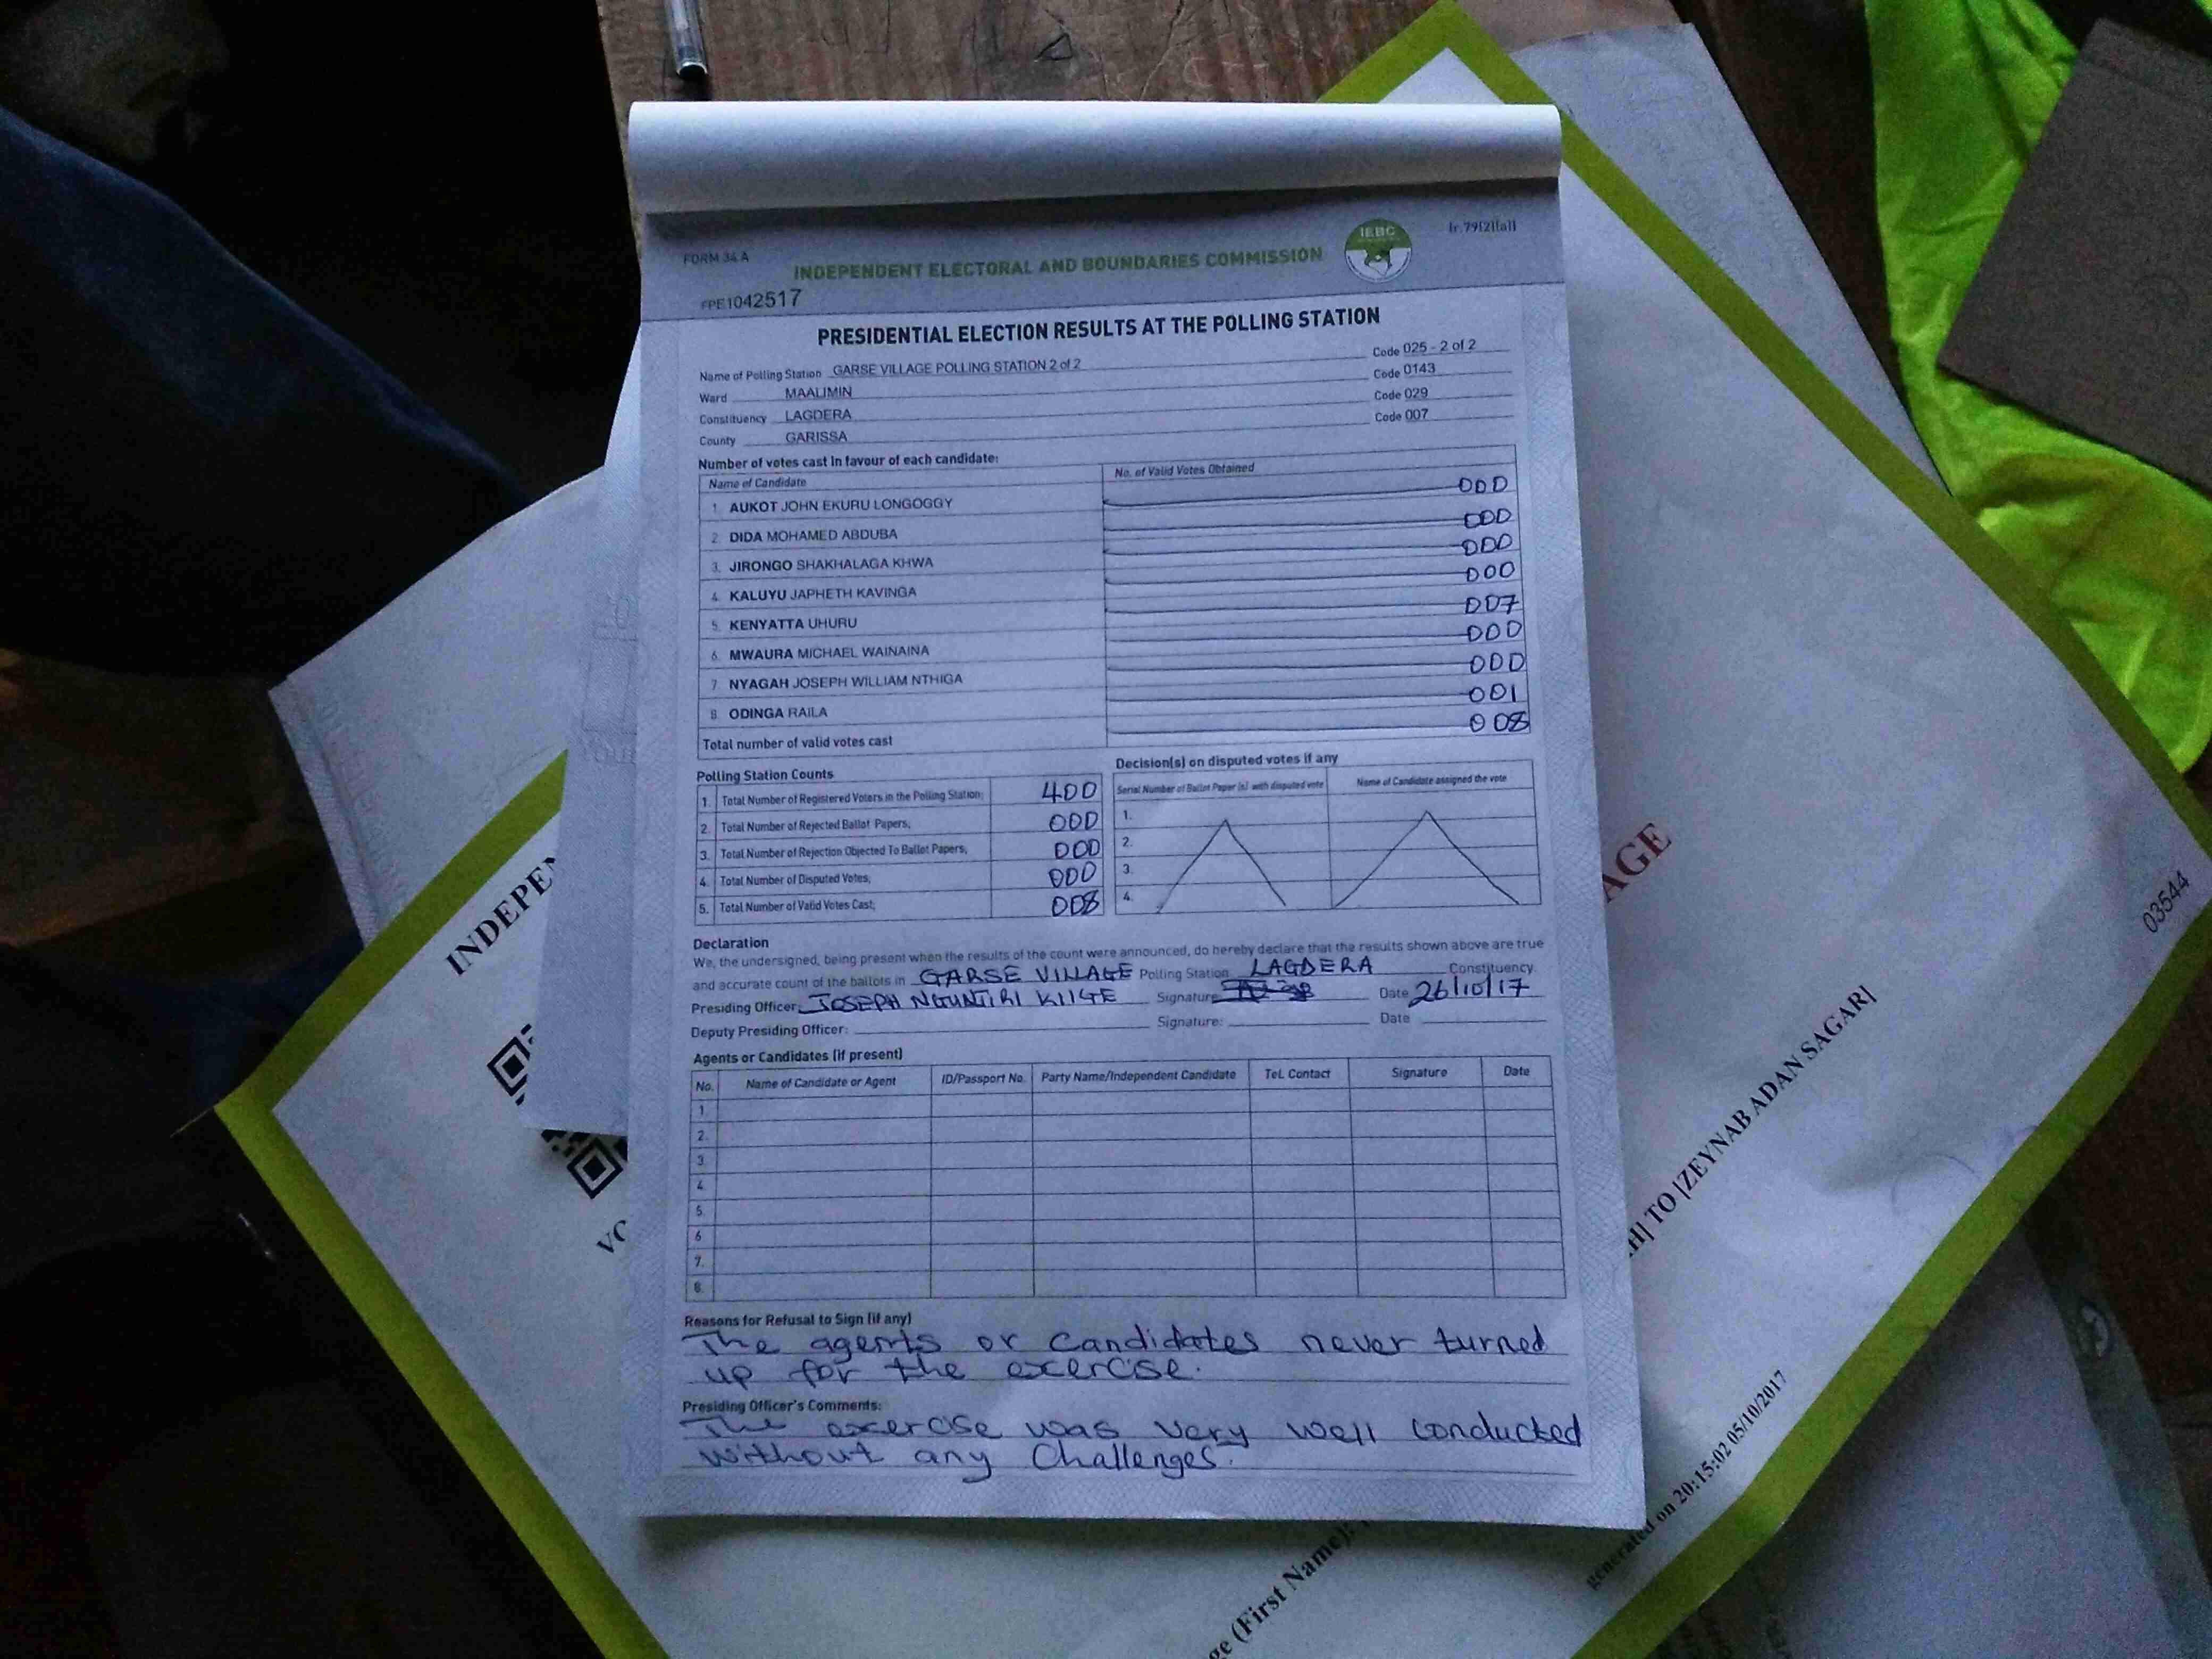 FORM 34 A
(r.79(2)(a))
INDEPENDENT ELECTORAL AND BOUNDARIES COMMISSION
IEBC
FPE1042517
PRESIDENTIAL ELECTION RESULTS AT THE POLLING STATION
Name of Polling Station GARSE VILLAGE POLLING STATION 2 of 2 Code 025 - 2 of 2
Ward MAALIMIN Code 0143
Constituency LAGDERA Code 029
County GARISSA Code 007
Number of votes cast in favour of each candidate:
Name of Candidate No. of Valid Votes Obtained
1. AUKOT JOHN EKURU LONGOGGY 000
2. DIDA MOHAMED ABDUBA 000
3. JIRONGO SHAKHALAGA KHWA 000
4. KALUYU JAPHETH KAVINGA 000
5. KENYATTA UHURU 007
6. MWAURA MICHAEL WAINAINA 000
7. NYAGAH JOSEPH WILLIAM NTHIGA 000
8. ODINGA RAILA 001
Total number of valid votes cast 008
Polling Station Counts
1. Total Number of Registered Voters in the Polling Station; 400
2. Total Number of Rejected Ballot Papers; 000
3. Total Number of Rejection Objected To Ballot Papers; 000
4. Total Number of Disputed Votes; 000
5. Total Number of Valid Votes Cast; 008
Decision(s) on disputed votes if any
Serial Number of Ballot Paper (s) with disputed vote Name of Candidate assigned the vote
1.
2.
3.
4.
Declaration
We, the undersigned, being present when the results of the count were announced, do hereby declare that the results shown above are true
and accurate count of the ballots in GARSE VILLAGE Polling Station LAGDERA Constituency.
Presiding Officer: JOSEPH NGUNJIRI KIIGE Signature Date 26/10/17
Deputy Presiding Officer: Signature: Date
Agents or Candidates (if present)
No. Name of Candidate or Agent ID/Passport No. Party Name/Independent Candidate Tel. Contact Signature Date
1.
2.
3.
4.
5.
6.
7.
8.
Reasons for Refusal to Sign (if any)
The agents or candidates never turned
up for the exercise.
Presiding Officer's Comments:
The exercise was very well conducted
without any challenges.
INDEPEN
AGE
03544
H] TO [ZEYNAB ADAN SAGAR]
generated on 20:15:02 05/10/2017
ge (First Name):
VO